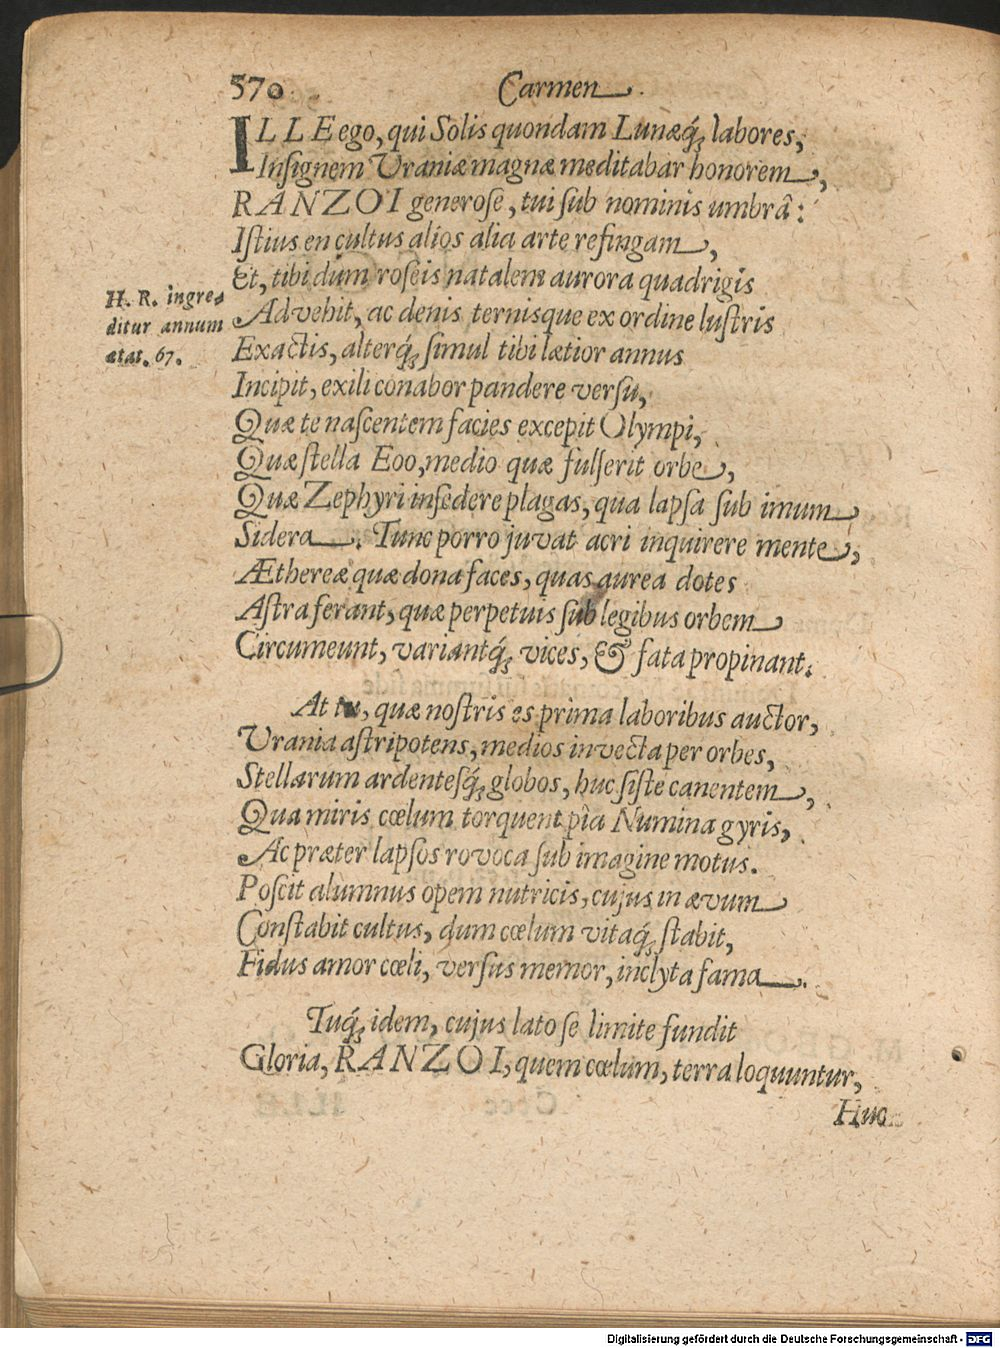 570 Carmen.
ILLE ego, qui Solis quondam Lunæq́; labores,
Insignem Uraniæ magnæ meditabar honorem,
RANZOI generose, tui sub nominis umbrâ:
Istius en cultus alios alia arte refingam,
Et, tibi dum roseis natalem aurora quadrigis
H. R. ingre-
ditur annum
ætat. 67.
Advehit, ac denis ternisque ex ordine lustris
Exactis, alterq́; simul tibi lætior annus
Incipit, exili conabor pandere versu,
Quæ te nascentem facies excepit Olympi,
Quæ stella Eoo, medio quæ fulserit orbe,
Quæ Zephyri insedere plagas, qua lapsa sub imum
Sidera. Tunc porro juvat acri inquirere mente,
Æthereæ quæ dona faces, quas aurea dotes
Astra ferant, quæ perpetuis sub legibus orbem
Circumeunt, variantq́; vices, & fata propinant.
At tu, quæ nostris es prima laboribus auctor,
Urania astripotens, medios invecta per orbes,
Stellarum ardentesq́; globos, huc siste canentem,
Qua miris cœlum torquent pia Numina gyris,
Ac præter lapsos rovoca sub imagine motus.
Poscit alumnus opem nutricis, cujus in ævum
Constabit cultus, dum cœlum vitaq́; stabit,
Fidus amor cœli, versus memor, inclyta fama.
Tuq́; idem, cujus lato se limite fundit
Gloria, RANZOI, quem cœlum, terra loquuntur,
Huc
Digitalisierung gefördert durch die Deutsche Forschungsgemeinschaft - DFG